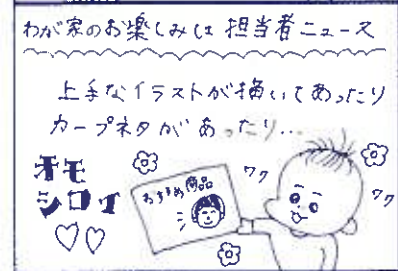 わが家のお楽しみは担当者ニュース
上手なイラストが描いてあったり
カープネタがあったり...
オモ
シロイ
おすすめ商品
ワク
ワク